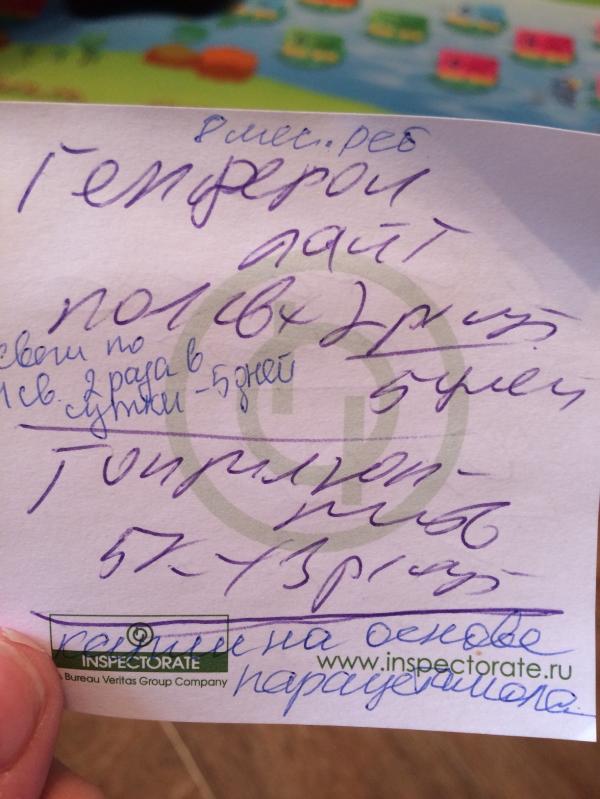 8 мес. реб
Генферон
лайт
по 1 св х 2 р/сут
свечи по
1 св. 2 раза в
сутки - 5 дней
5 дней
5 к х 3 р/сут
INSPECTORATE
Bureau Veritas Group Company
www.inspectorate.ru
на основе
парацетамола